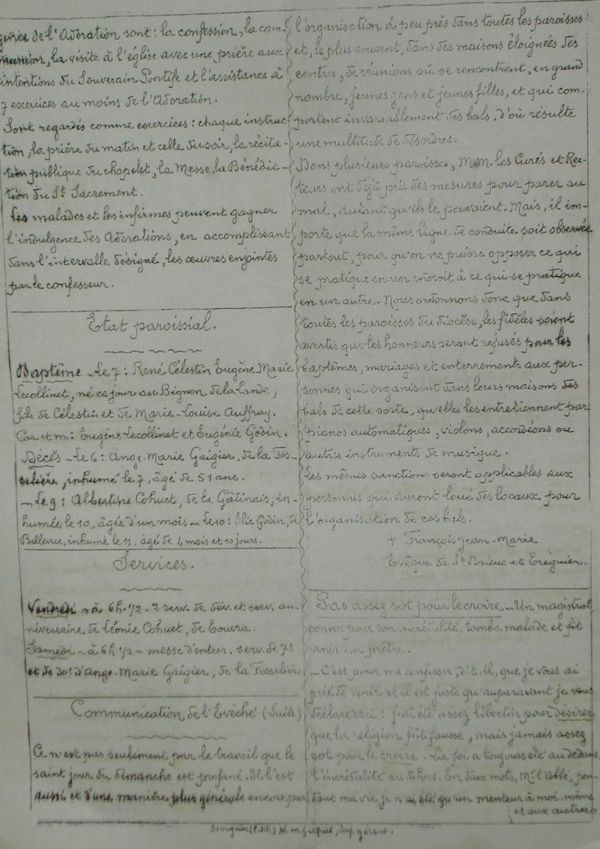 de l'Adoration sont : la confession, la com-
munion, la visite à l'église avec une prière aux
intentions du Souverain Pontife et l'assistance à
7 exercices au moins de l'Adoration.
Sont regardés comme exercices : chaque instruc
tion, la prière du matin et celle du soir, la récita
tion publique du chapelet, la Messe, la Bénédic-
tion du St Sacrement.
Les malades et les infirmes peuvent gagner
l'indulgence des Adorations, en accomplissant
dans l'intervalle désigné, les œuvres enjointes
par le confesseur.
Etat paroissial.
Baptême - Le 7 : René Célestin Eugène Marie
Lecollinet, né ce jour au Bignon de la Lande,
fils de Célestin et de Marie-Louise Auffray.
Par. et m : Eugène Lecollinet et Eugénie Godin.
Décès - Le 6 : Ange Marie Gaigier, de la Tos-
selière, inhumé le 7, âgé de 51 ans.
- Le 9 : Albertine Cohuet, de la Gâtinais, in-
humée le 10, âgée d'un mois - Le 10 : Elie Godin, de
inhumé le 11, âgé de 4 mois et 10 jours.
Services.
Vendredi - à 6h.1/2 - 2 serv. de dév. et serv. an-
niversaire, de Léonie Cohuet, de
Samedi - à 6h.1/2 - messe d'enterr. serv. de 7e
et de d'Ange-Marie Gaigier, de la Tosselière
Communication de l'Evêché (Suite)
Ce n'est pas seulement par le travail que le
saint jour du dimanche est profané. Il l'est
aussi et d'une manière plus générale encore, par
l'organisation à peu près dans toutes les paroisses
et, le plus souvent, dans des maisons éloignées des
centres, de réunions où se rencontrent, en grand
nombre, jeunes gens et jeunes filles, et qui com-
portent invariablement des bals, d'où résulte
une multitude de désordres.
Dans plusieurs paroisses, M.M. les Curés et Rec-
teurs ont déjà pris des mesures pour parer au
mal, autant qu'ils le pouvaient. Mais, il im-
porte que la même ligne de conduite soit observée
partout, pour qu'on ne puisse opposer ce qui
se pratique en un endroit à ce qui se pratique
en un autre. Nous ordonnons donc que dans
toutes les paroisses du diocèse, les fidèles soient
avertis que les honneurs seront refusés pour les
baptêmes, mariages et enterrements aux per-
sonnes qui organisent dans leurs maisons des
bals de cette sorte, qu'elles les entretiennent par
pianos automatiques, violons, accordéons ou
autres instruments de musique.
Les mêmes sanctions seront applicables aux
personnes qui auront loué des locaux pour
l'organisation de ces bals.
+ François Jean-Marie
Evêque de St Brieuc et Tréguier.
Pas assez sot pour le croire - Un magistrat
connu pour son incrédulité, tomba malade et fit
venir un prêtre.
- C'est pour me confesser, dit-il, que je vous ai
prié de venir et il est juste qu'auparavant je vous
déclare ceci : j'ai été assez libertin pour désirer
que la religion fût fausse, mais jamais assez
sot pour le croire. La foi a toujours été au dedans,
l'incrédulité au dehors. En deux mots, Mr l'abbé, pen-
dant ma vie, je n'ai été qu'un menteur à moi-même
et aux autres.
gérant.